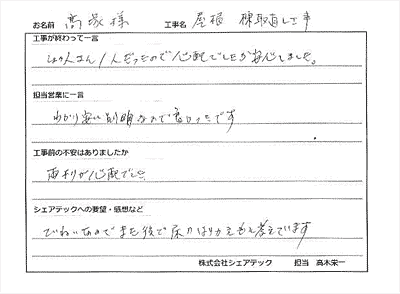 お名前 高塚様 工事名 屋根 棟取直し工事
工事が終わって一言
しょく人さん1人だったので心配でしたが安心しました。
担当営業に一言
わかり安い説明なので良かったです
工事前の不安はありましたか
雨もりが心配でした
シェアテックへの要望・感想など
ていねいなのでまた後で床のはりかえも考えています
株式会社シェアテック 担当 高木栄一